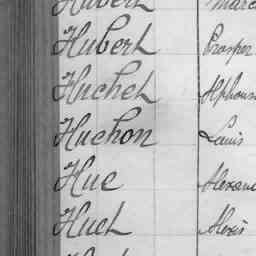 Hubert Prosper
Huchet Alphonse
Huchon Louis
Hue
Huet Alexis